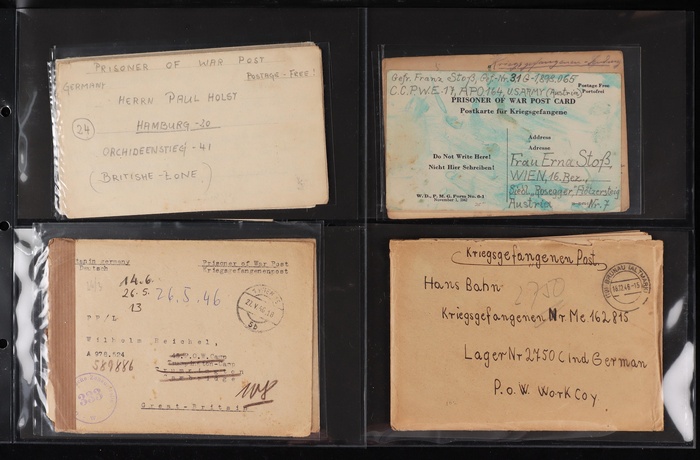 PRISONER OF WAR POST
GERMANY
POSTAGE-FREE!
HERRN PAUL HOLST
24
HAMBURG-20
ORCHIDEENSTIEG-41
(BRITISHE-ZONE.)
Kriegsgefangenen
Gefr. Franz Stoß, Gef-Nr. 31G-
C.C.P.W.E-17, APO 164, US ARMY (Austria)
Postage Free
Portofrei
PRISONER OF WAR POST CARD
Postkarte für Kriegsgefangene
Address
Adresse
Do Not Write Here!
Nicht Hier Schreiben!
Frau Erna Stoß,
WIEN, 16. Bez.,
Austria Nr. 7
W. D., P. M. G. Form No. 6-1
November 1,
germany
Deutsch
Prisoner of War Post
Kriegsgefangenenpost
14.6.
26.5.
13
26.5.46
5b
PP/L
Wilhelm Reichel,
A 978.594
589886
108
Great-Britain
333
Kriegsgefangenen Post.
Hans Bahn
2750
Kriegsgefangenen Nr. Me 162815
Lager Nr 2750 C ind German
P.o.W. Work Coy.